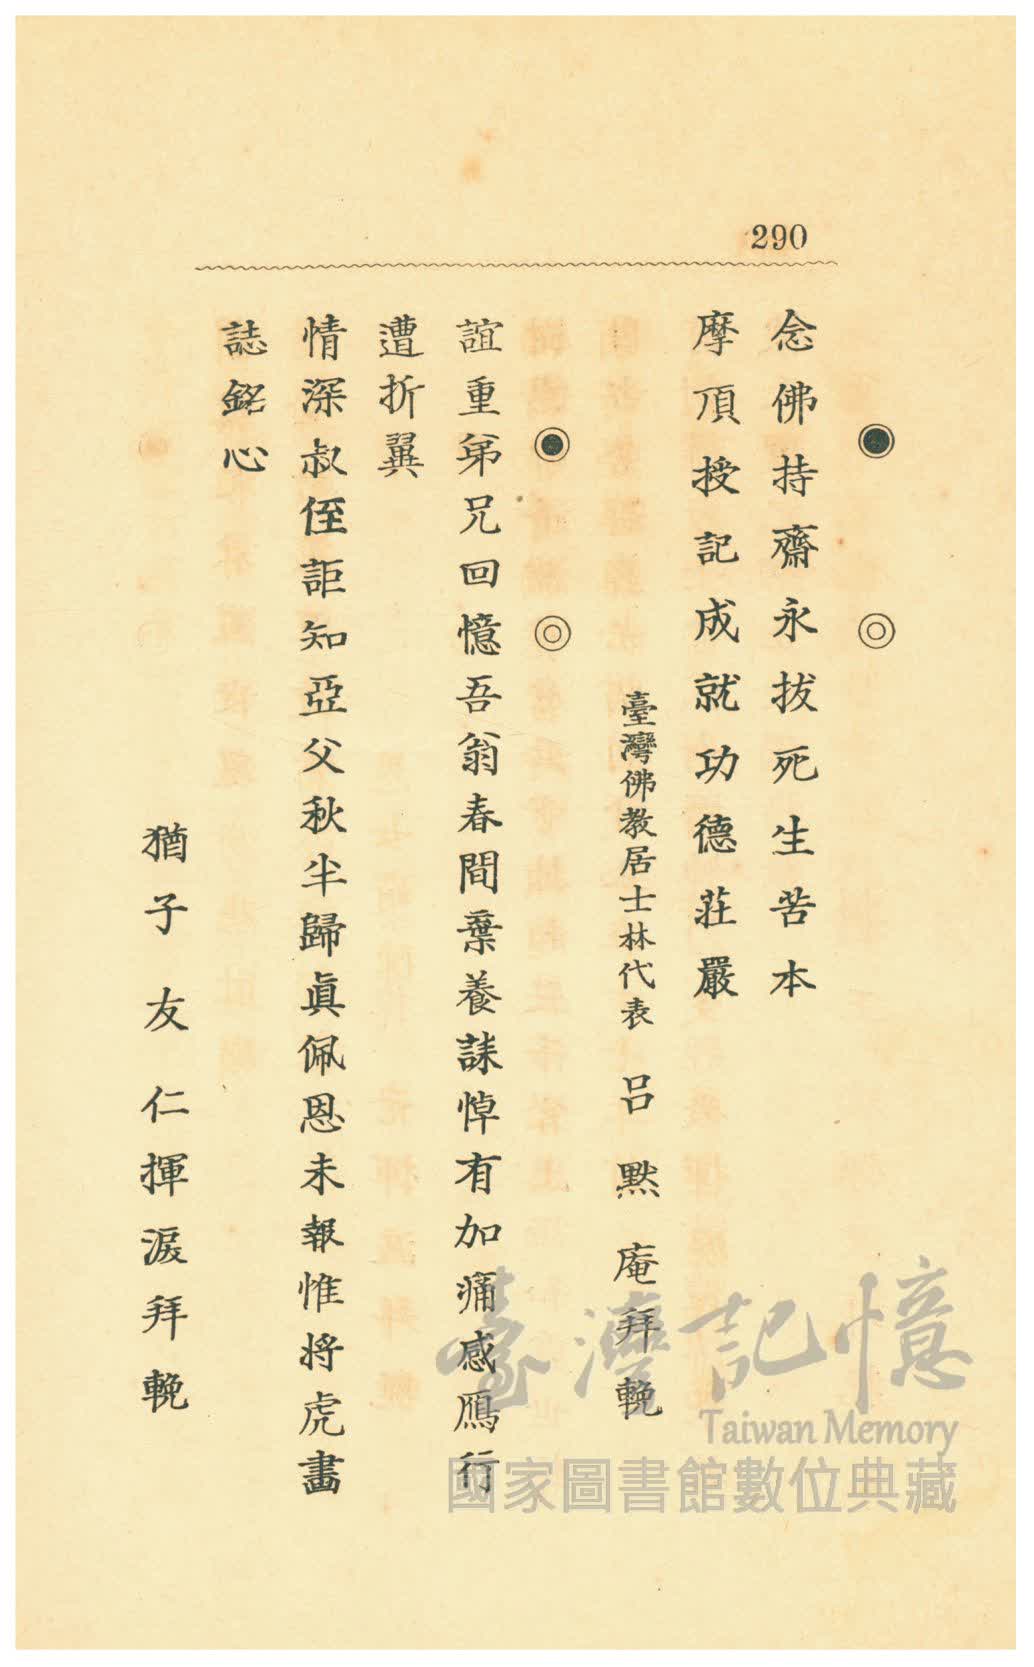 290
◉ ◎
念佛持齋永拔死生苦本
摩頂授記成就功德莊嚴
臺灣佛教居士林代表 呂默庵拜輓
◉ ◎
誼重弟兄回憶吾翁春間棄養誄悼有加痛感鴈行
遭折翼
情深叔侄詎知亞父秋半歸眞佩恩未報惟將虎畵
誌銘心
猶子友仁揮淚拜輓
臺灣記憶
Taiwan Memory
國家圖書館數位典藏